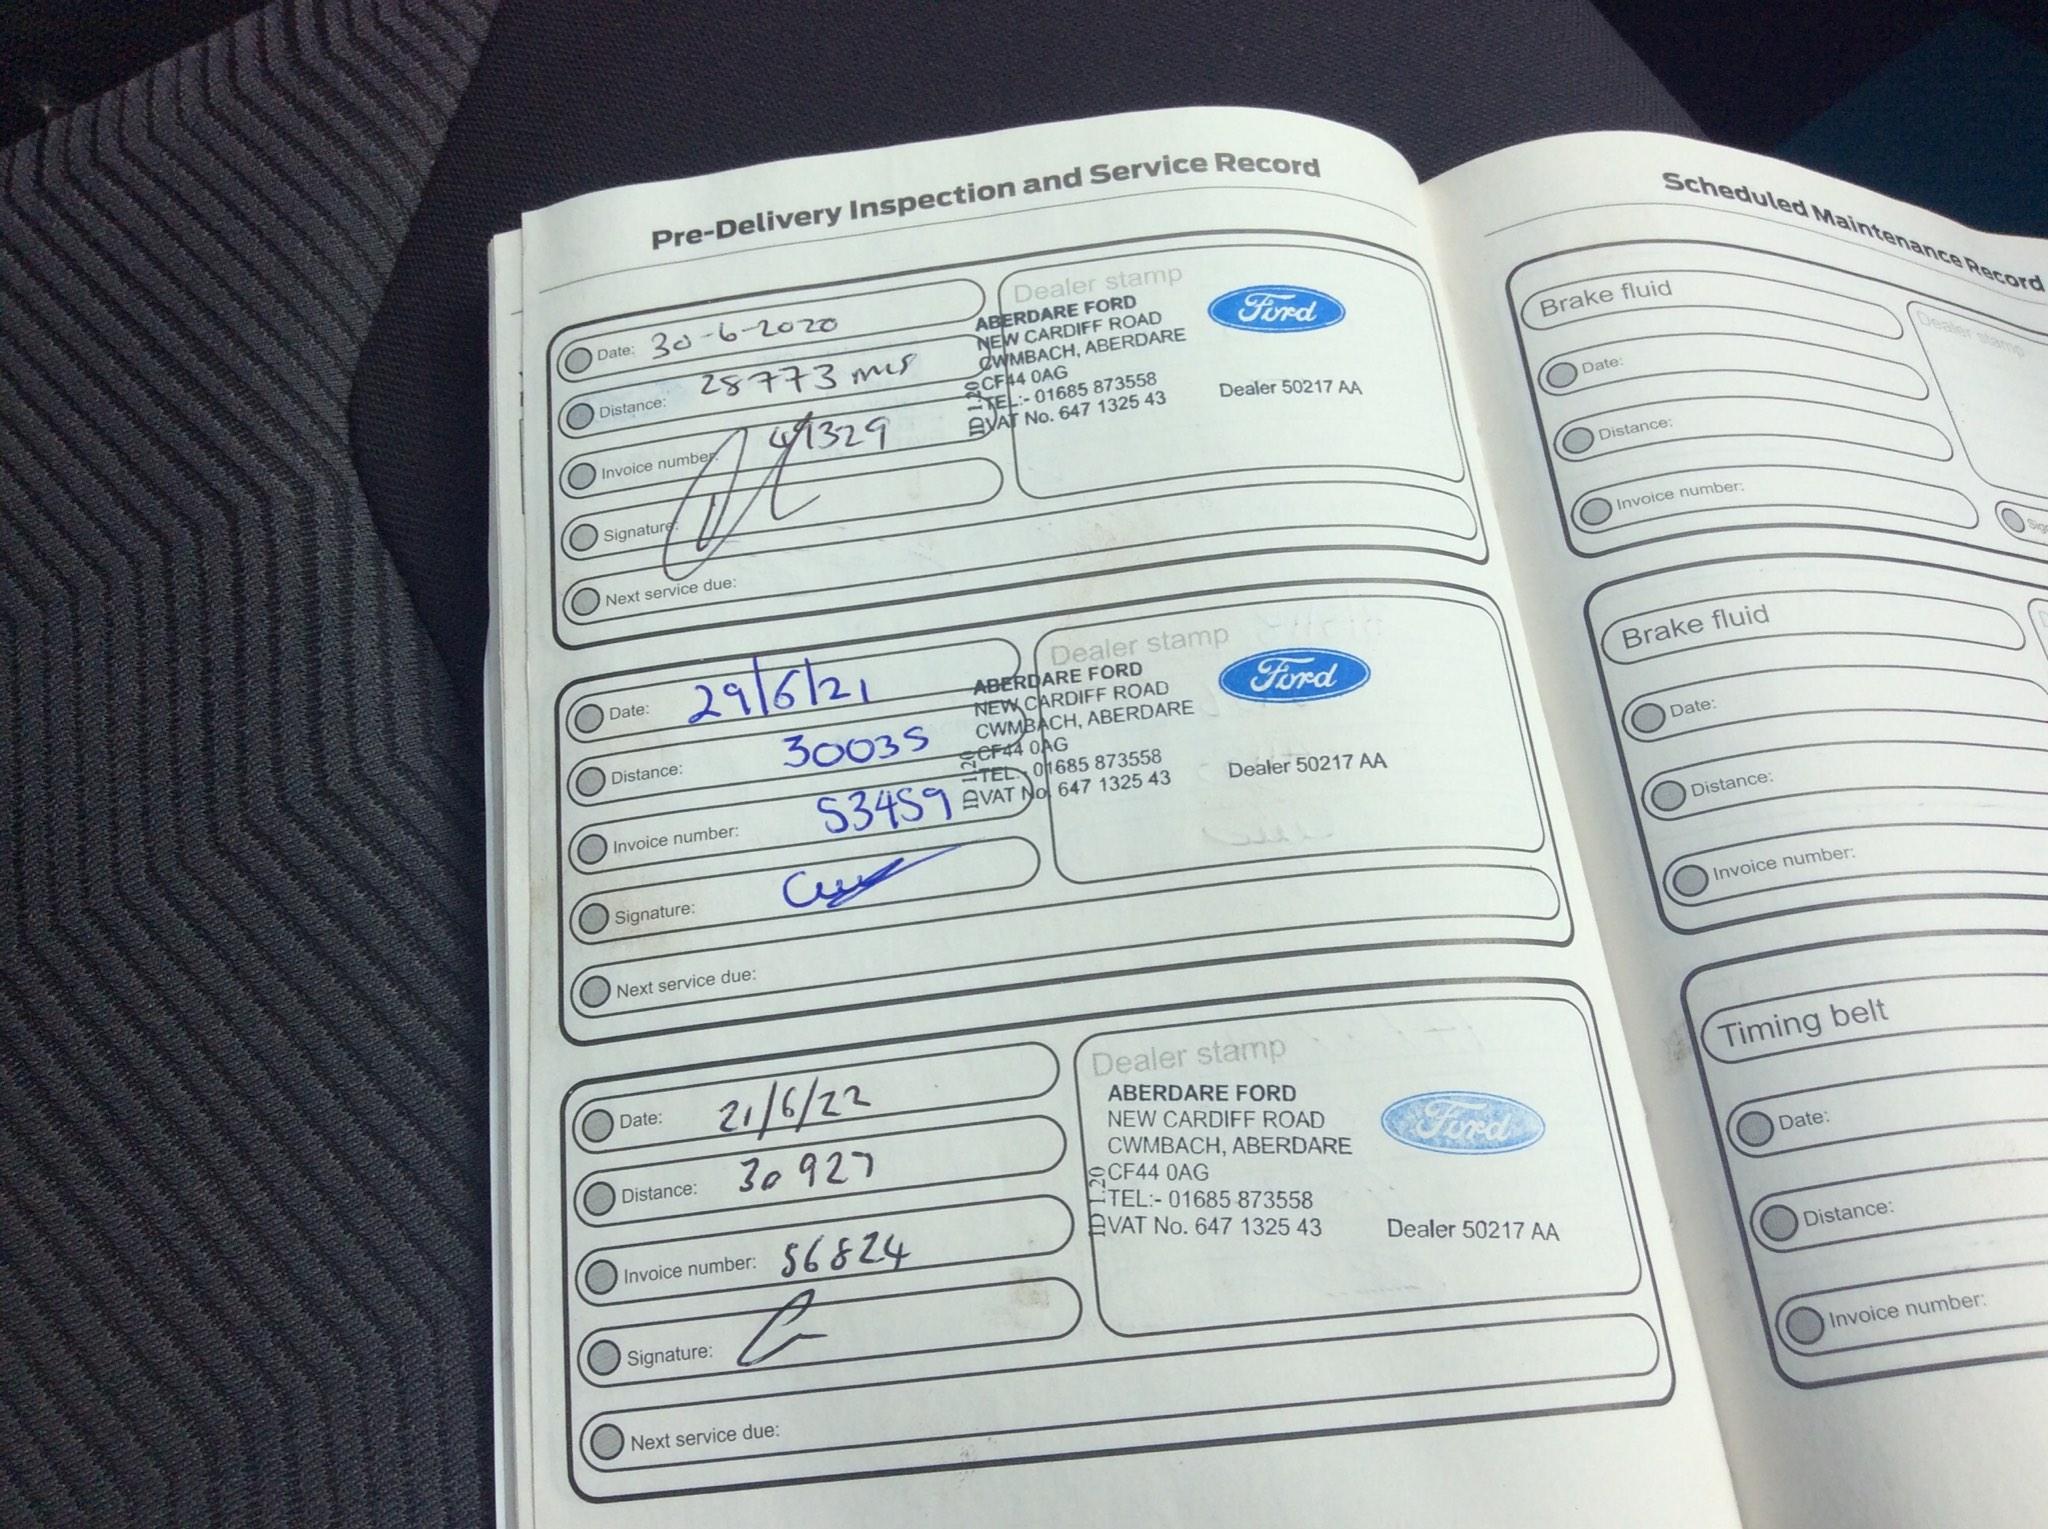 Pre-Delivery Inspection and Service Record
Date: 30-6-2020
Distance: 28773 mls
Invoice number: 49329
Signature:
Next service due:
Dealer stamp
ABERDARE FORD
NEW CARDIFF ROAD
CWMBACH, ABERDARE
CF44 0AG
TEL:- 01685 873558
VAT No. 647 1325 43
ID 1.20
Ford
Dealer 50217 AA
Date: 29/6/21
Distance: 30035
Invoice number: 53459
Signature:
Next service due:
Dealer stamp
ABERDARE FORD
NEW CARDIFF ROAD
CWMBACH, ABERDARE
CF44 0AG
TEL:- 01685 873558
VAT No. 647 1325 43
ID 1.20
Ford
Dealer 50217 AA
Date: 21/6/22
Distance: 30927
Invoice number: 56824
Signature:
Next service due:
Dealer stamp
ABERDARE FORD
NEW CARDIFF ROAD
CWMBACH, ABERDARE
CF44 0AG
TEL:- 01685 873558
VAT No. 647 1325 43
ID 1.20
Ford
Dealer 50217 AA
Scheduled Maintenance Record
Brake fluid
Date:
Distance:
Invoice number:
Dealer stamp
Brake fluid
Date:
Distance:
Invoice number:
Timing belt
Date:
Distance:
Invoice number: